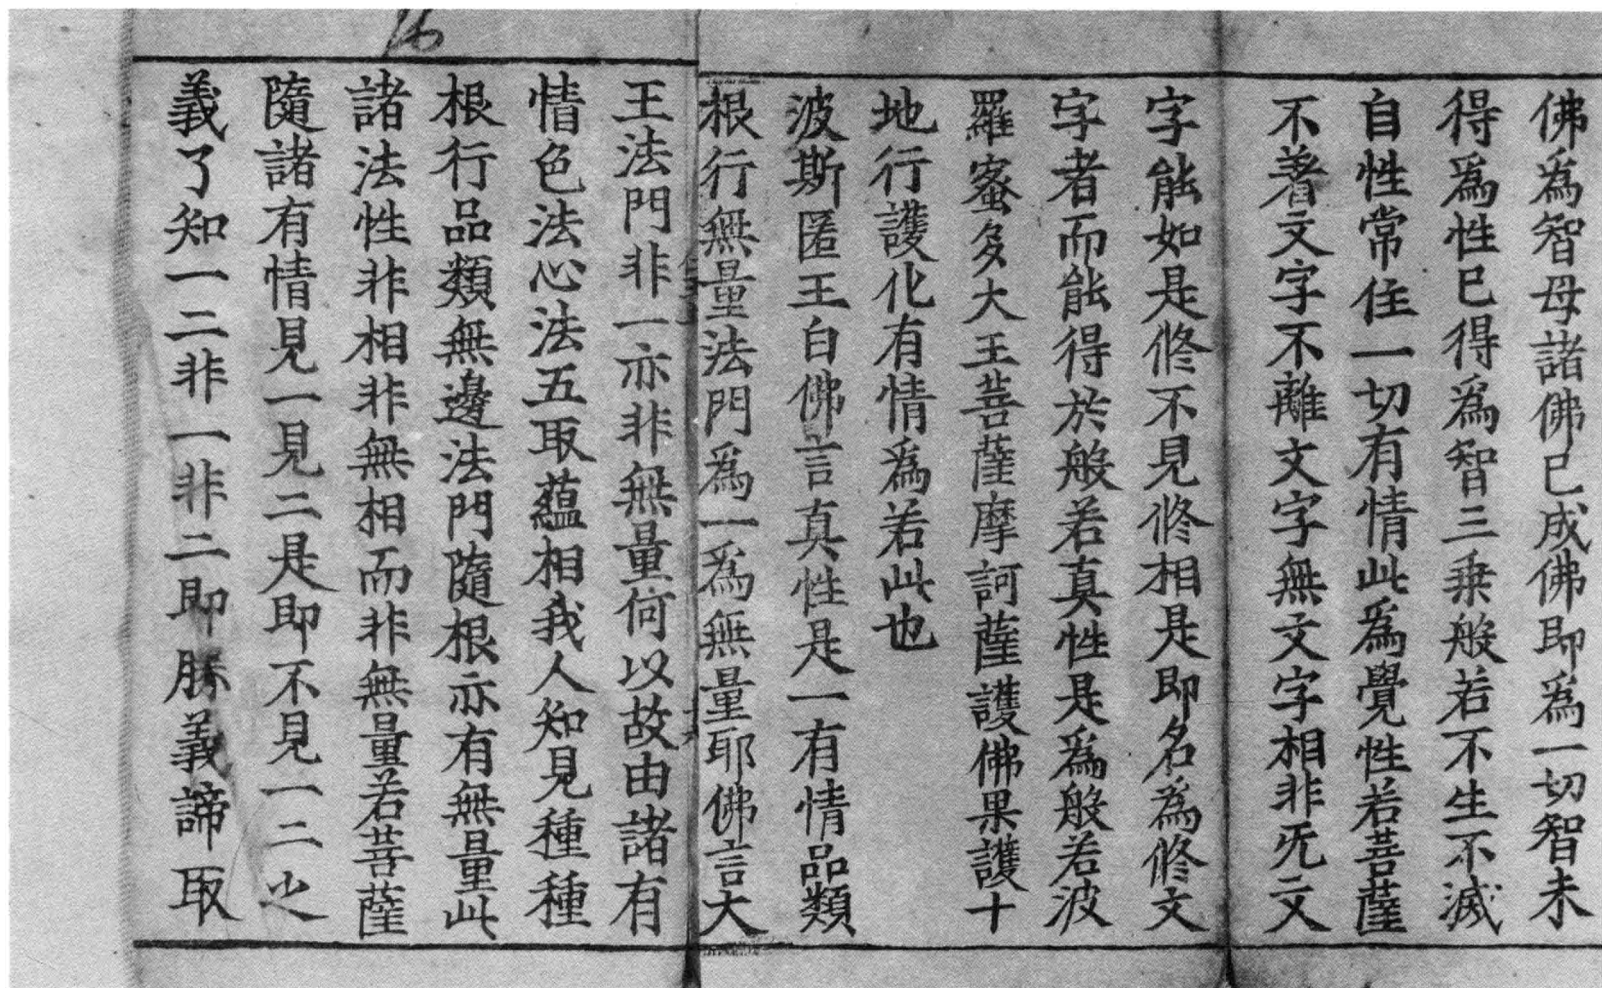 佛爲智母諸佛已成佛即爲一切智未
得爲性已得爲智三乗般若不生不滅
自性常住一切有情此爲覺性若菩薩
不著文字不離文字無文字相非无文
字能如是修不見修相是即名爲修文
字者而能得於般若真性是爲般若波
羅蜜多大王菩薩摩訶薩護佛果護十
地行護化有情爲若此也
波斯匿王白佛言真性是一有情品類
根行無量法門爲一爲無量耶佛言大
王法門非一亦非無量何以故由諸有
情色法心法五取蘊相我人知見種種
根行品類無邊法門隨根亦有無量此
諸法性非相非無相而非無量若菩薩
隨諸有情見一見二是即不見一二之
義了知一二非一非二即勝義諦取
16